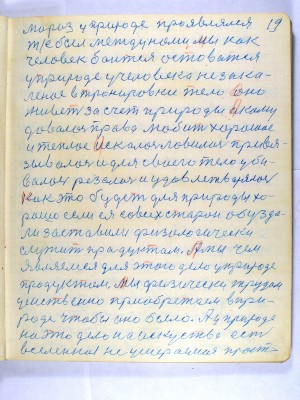 мороз у природе проявлялся 19
между ними мы как
человек боится остоватся
у природе у человека не зака-
леное в тронировки тело оно
живет за счет природы А кому
довалося права любит хорошое
и теплое Искал ловил и превя-
зывал и для своего тело уби-
вал резал и удовлетворял
как это будет для природы хо-
рошо если ея со всех старон обузда-
ли заставили физологически
служит продуктам. А мы чем
являемся для этого дело у природе
продуктам. Мы физически трудом
приобретаем в при-
роде чтобы оно было. А у природе
на это дело на искуство ест
вселеная не умераемая прост-